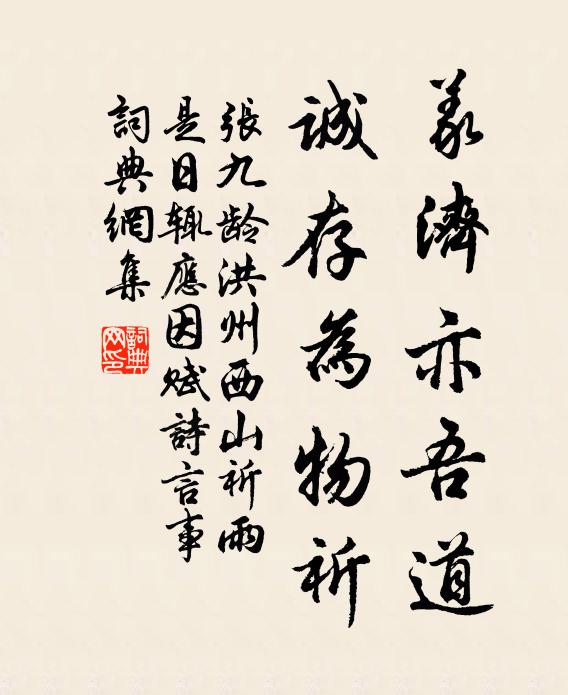 義濟亦吾道
誠存為物祈
張九龄洪州西山祈雨
是日輒應因赋詩言事
詞典網集
詞典網印